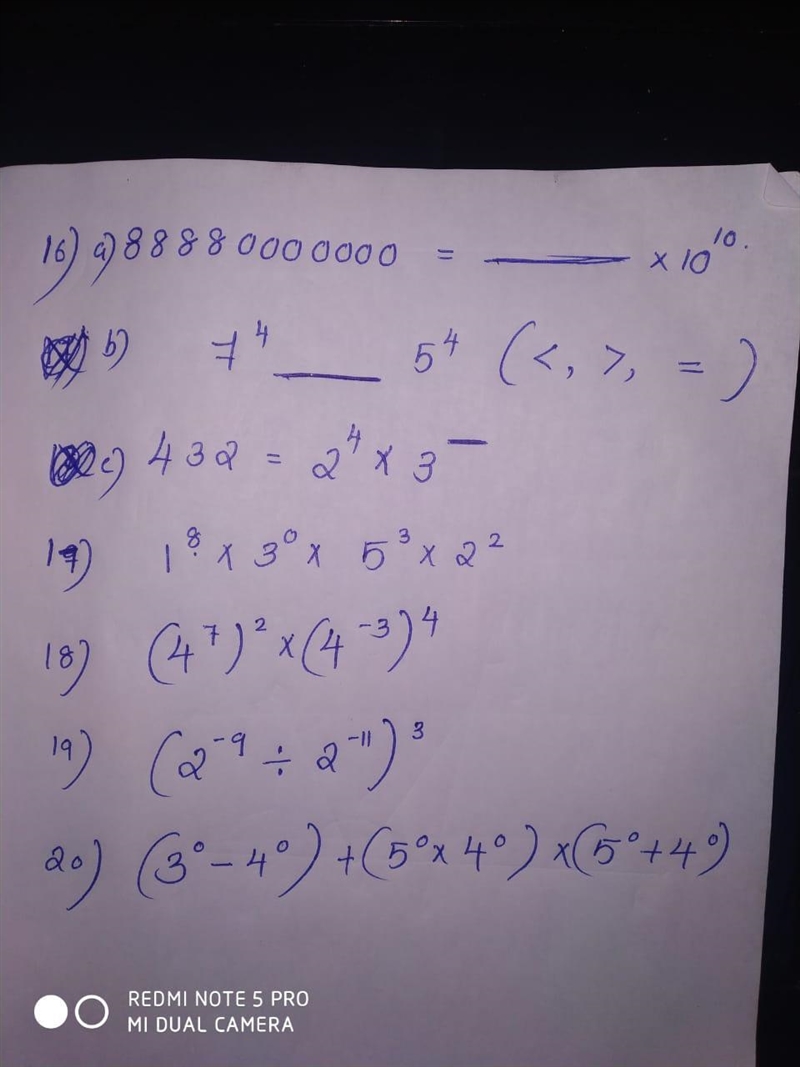 16) a) 88880000000 = ____ × 10¹⁰.
b) 7⁴ ____ 5⁴ (<, >, =)
c) 432 = 2⁴ × 3^—
17) 1⁸ × 3⁰ × 5³ × 2²
18) (4⁷)² × (4⁻³)⁴
19) (2⁻⁹ ÷ 2⁻¹¹)³
20) (3⁰ − 4⁰) + (5⁰ × 4⁰) × (5⁰ + 4⁰)
REDMI NOTE 5 PRO
MI DUAL CAMERA